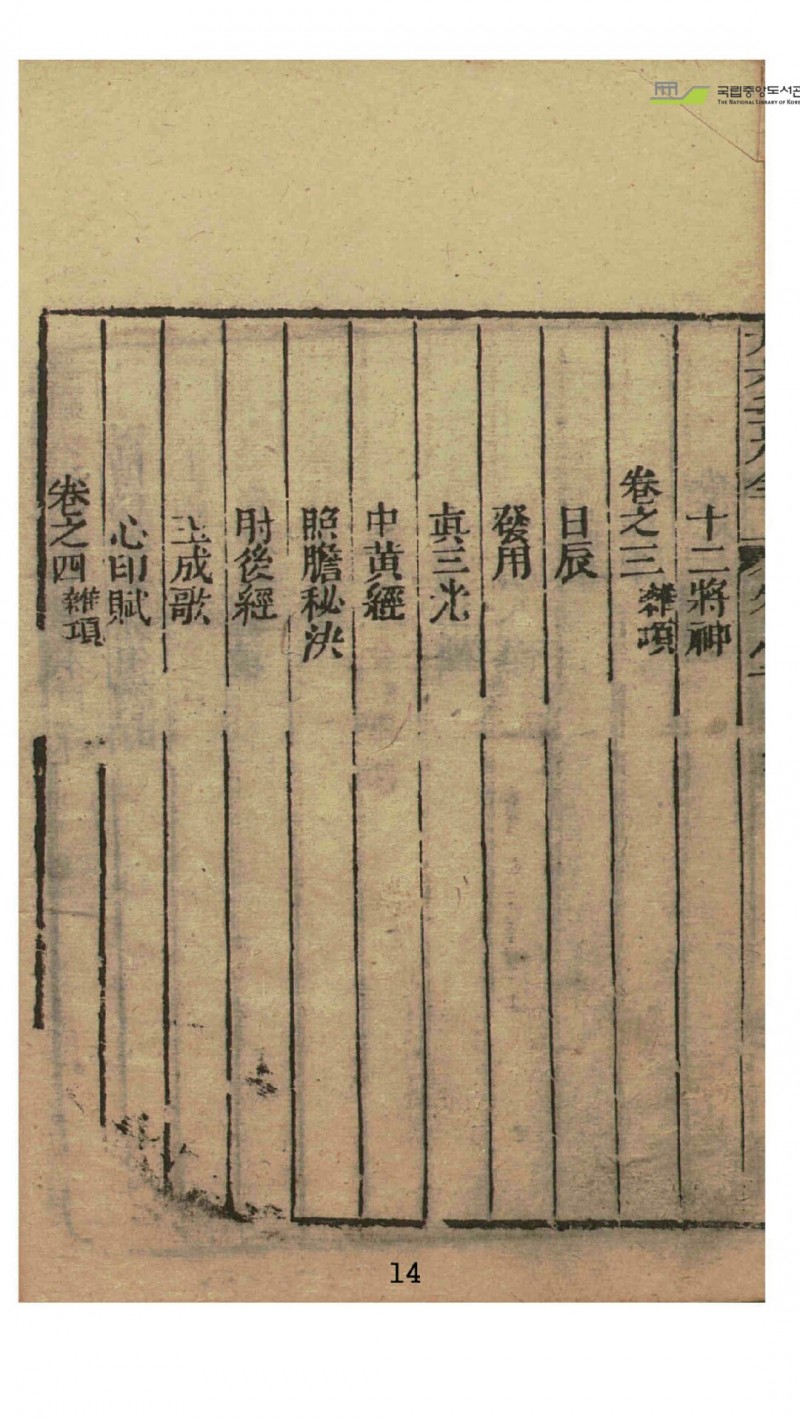 국립중앙도서관
THE NATIONAL LIBRARY OF KOREA
十二將神
卷之三 雜項
日辰
發用
眞三光
中黃經
照膽秘決
肘後經
玉成歌
心印賦
卷之四 雜項
14